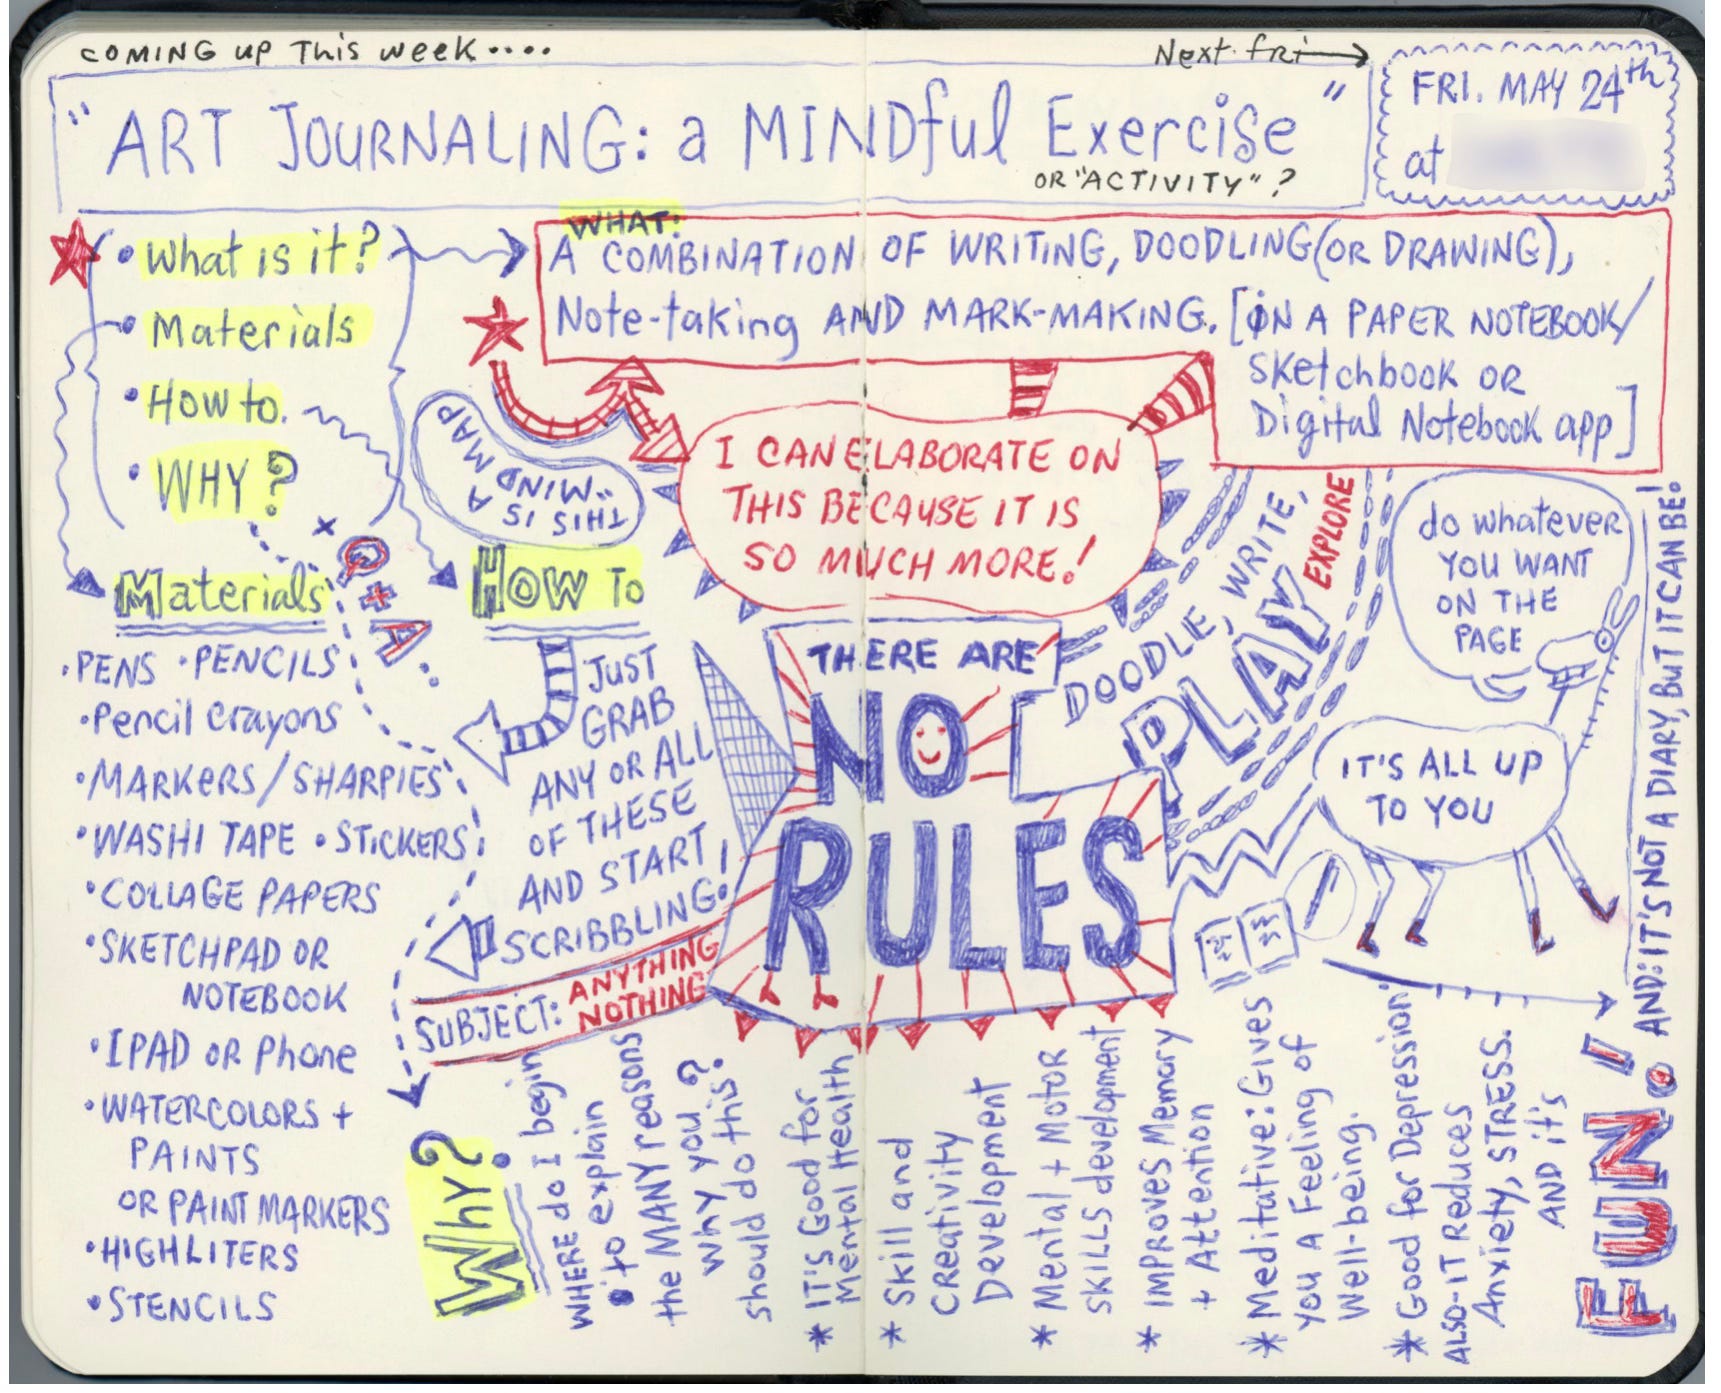 COMING UP THIS WEEK....
Next fri
"ART JOURNALING: a MINDful Exercise"
OR "ACTIVITY"?
FRI. MAY 24th
at
• What is it?
• Materials
• How to.
• WHY?
WHAT:
A COMBINATION OF WRITING, DOODLING (OR DRAWING),
Note-taking AND MARK-MAKING. [ON A PAPER NOTEBOOK/
Sketchbook OR
Digital Notebook app]
THIS IS
A "MIND MAP
I CAN ELABORATE ON
THIS BECAUSE IT IS
SO MUCH MORE!
Q + A
Materials
• PENS • PENCILS
• Pencil crayons
• MARKERS/SHARPIES
• WASHI TAPE • STICKERS
• COLLAGE PAPERS
• SKETCHPAD OR
NOTEBOOK
• IPAD OR Phone
• WATERCOLORS +
PAINTS
OR PAINT MARKERS
• HIGHLITERS
• STENCILS
HOW TO
JUST
GRAB
ANY OR ALL
OF THESE
AND START
SCRIBBLING!
SUBJECT: ANYTHING
NOTHING
THERE ARE
NO
RULES
DOODLE, WRITE,
PLAY
EXPLORE
do whatever
YOU WANT
ON THE
PAGE
IT'S ALL UP
TO YOU
AND: IT'S NOT A DIARY, BUT IT CAN BE!
Why?
WHERE do I begin
to explain
the MANY reasons
why you?
should do this?
* IT'S Good for
Mental Health
* Skill and
CReativity
Development
* Mental + Motor
skills development
* IMPROVES Memory
+ Attention
* Meditative: Gives
you A Feeling of
Well-being.
* Good for Depression
ALSO-IT Reduces
Anxiety, STRESS.
AND it's
FUN!